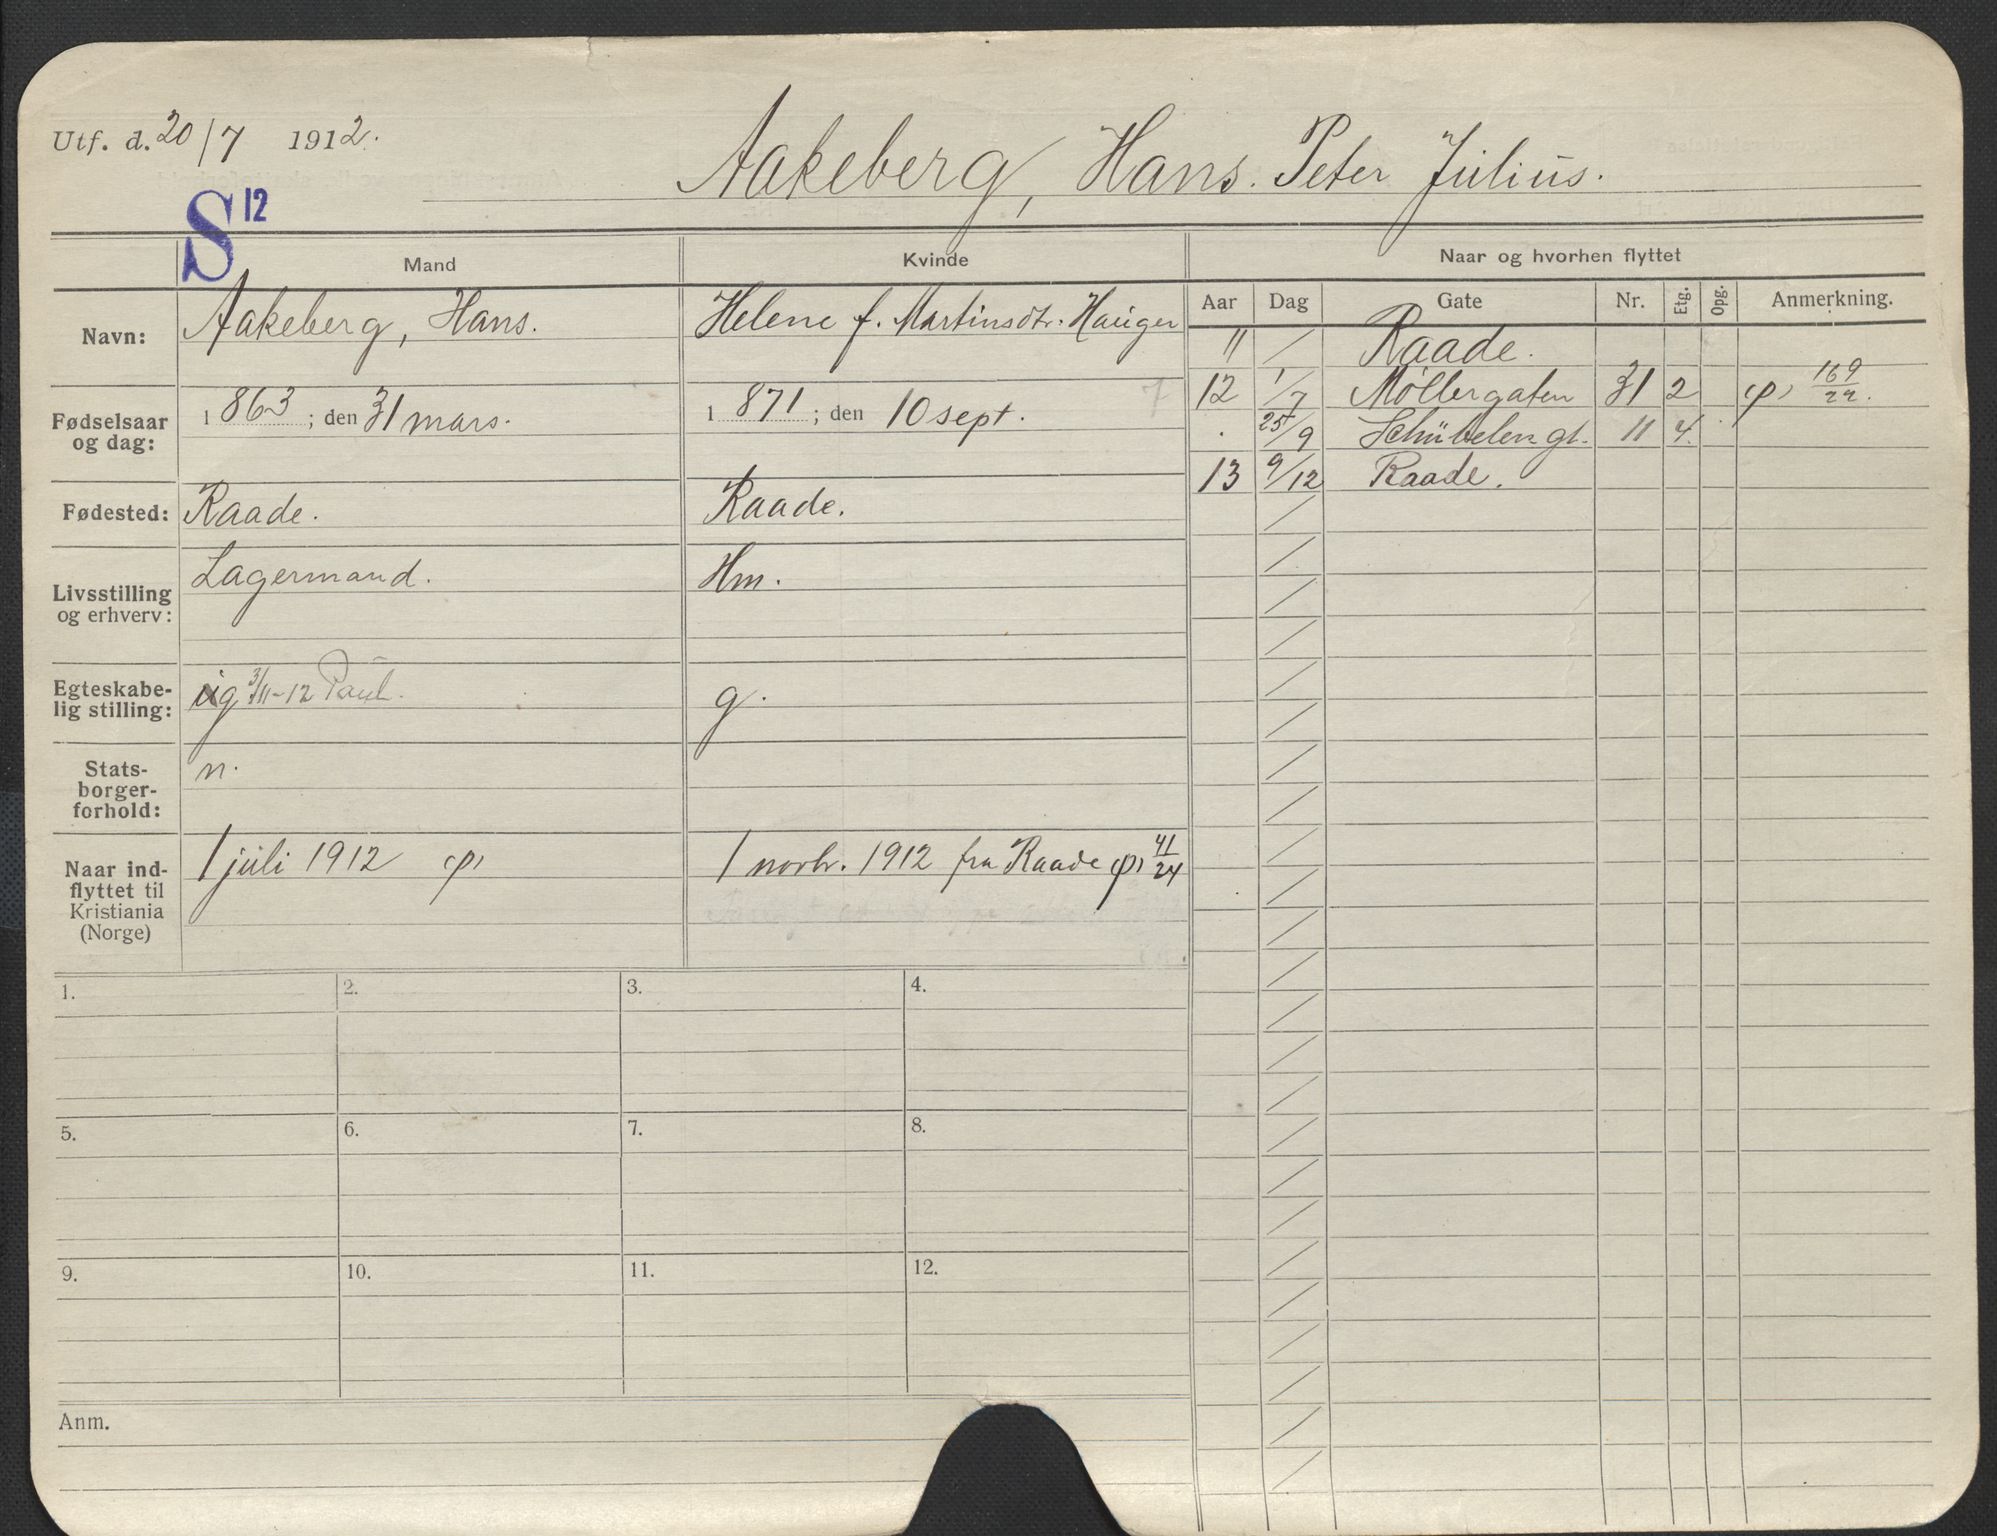 Utf. d. 20/7 1912.
Aakeberg, Hans. Peter Julius.
S 12
Mand Kvinde Naar og hvorhen flyttet
Aar Dag Gate Nr. Etg. Opg. Anmerkning.
Navn: Aakeberg, Hans. Helene f. Martinsdtr. Hauger
Fødselsaar og dag: 1863; den 31 mars. 1871; den 10 sept. 7
Fødested: Raade. Raade.
Livsstilling og erhverv: Lagermand. Hm.
Egteskabelig stilling: g 3/11-12 Paul. g.
Statsborgerforhold: n.
Naar indflyttet til Kristiania (Norge) 1 juli 1912 φ) 1 novbr. 1912 fra Raade φ) 41/24
" / Raade.
12 1/7 Møllergaten 31 2 φ) 169/22.
. 25/9 Schübelers gt. 11 4.
13 9/12 Raade.
1. 2. 3. 4.
5. 6. 7. 8.
9. 10. 11. 12.
Anm.